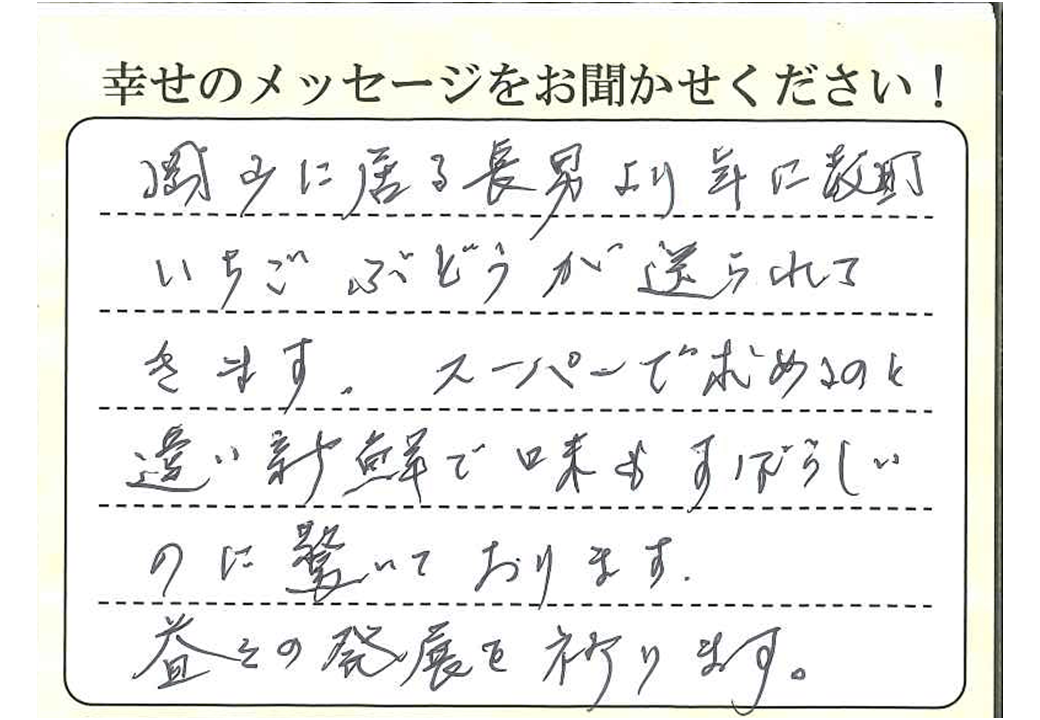 幸せのメッセージをお聞かせください！
岡山に居る長男より年に数回
いちごぶどうが送られて
きます。スーパーで求めるのと
違い新鮮で味もすばらしい
のに驚いております.
益々の発展を祈ります。